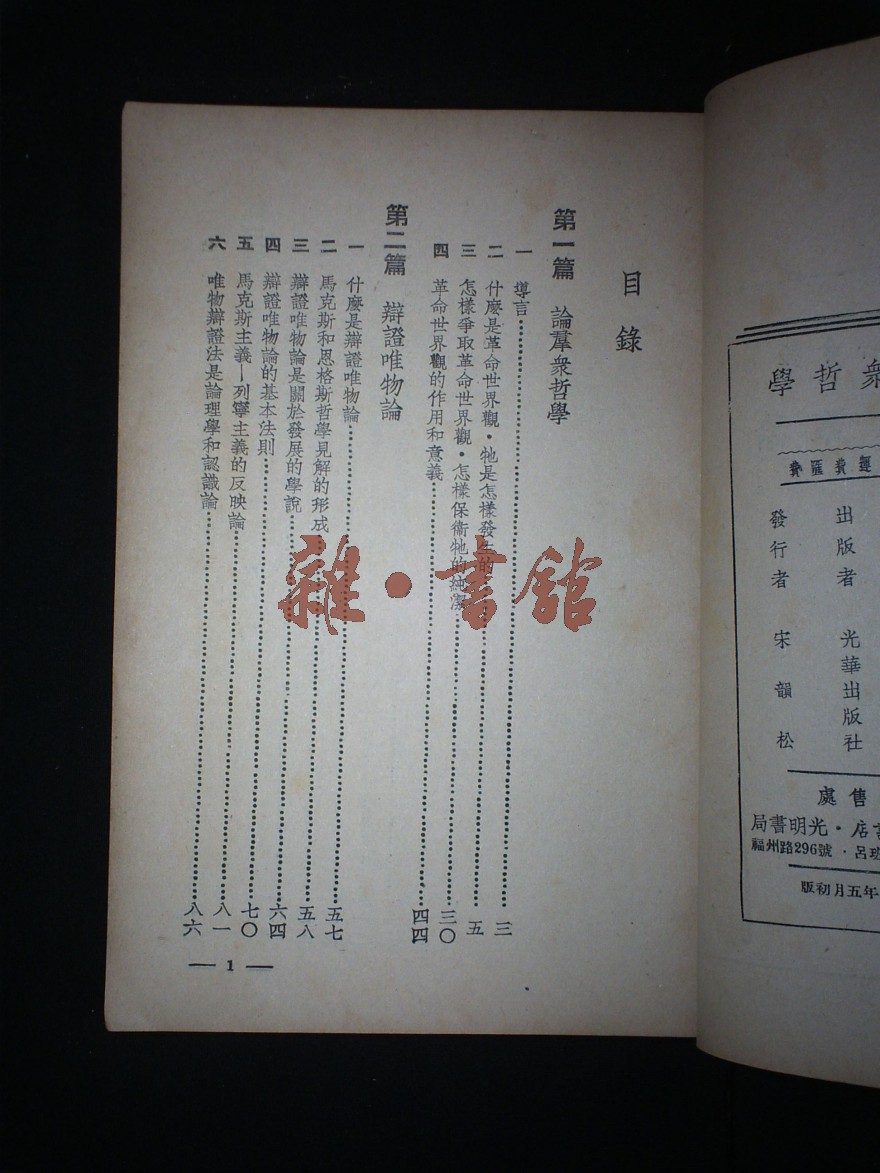 衆哲學
經裁匯費
出版者 光華出版社
發行者 宋韻松
售處
店·光明書局
福州路296號·呂班
年五月初版
目錄
第一篇 論羣衆哲學
一 導言……三
二 什麼是革命世界觀·牠是怎樣發生的……五
三 怎樣爭取革命世界觀·怎樣保衞牠的純潔……三〇
四 革命世界觀的作用和意義……四四
第二篇 辯證唯物論
一 什麼是辯證唯物論……五七
二 馬克斯和恩格斯哲學見解的形成……五八
三 辯證唯物論是關於發展的學說……六四
四 辯證唯物論的基本法則……七〇
五 馬克斯主義—列寧主義的反映論……八一
六 唯物辯證法是論理學和認識論……八六
— 1 —
雜·書館